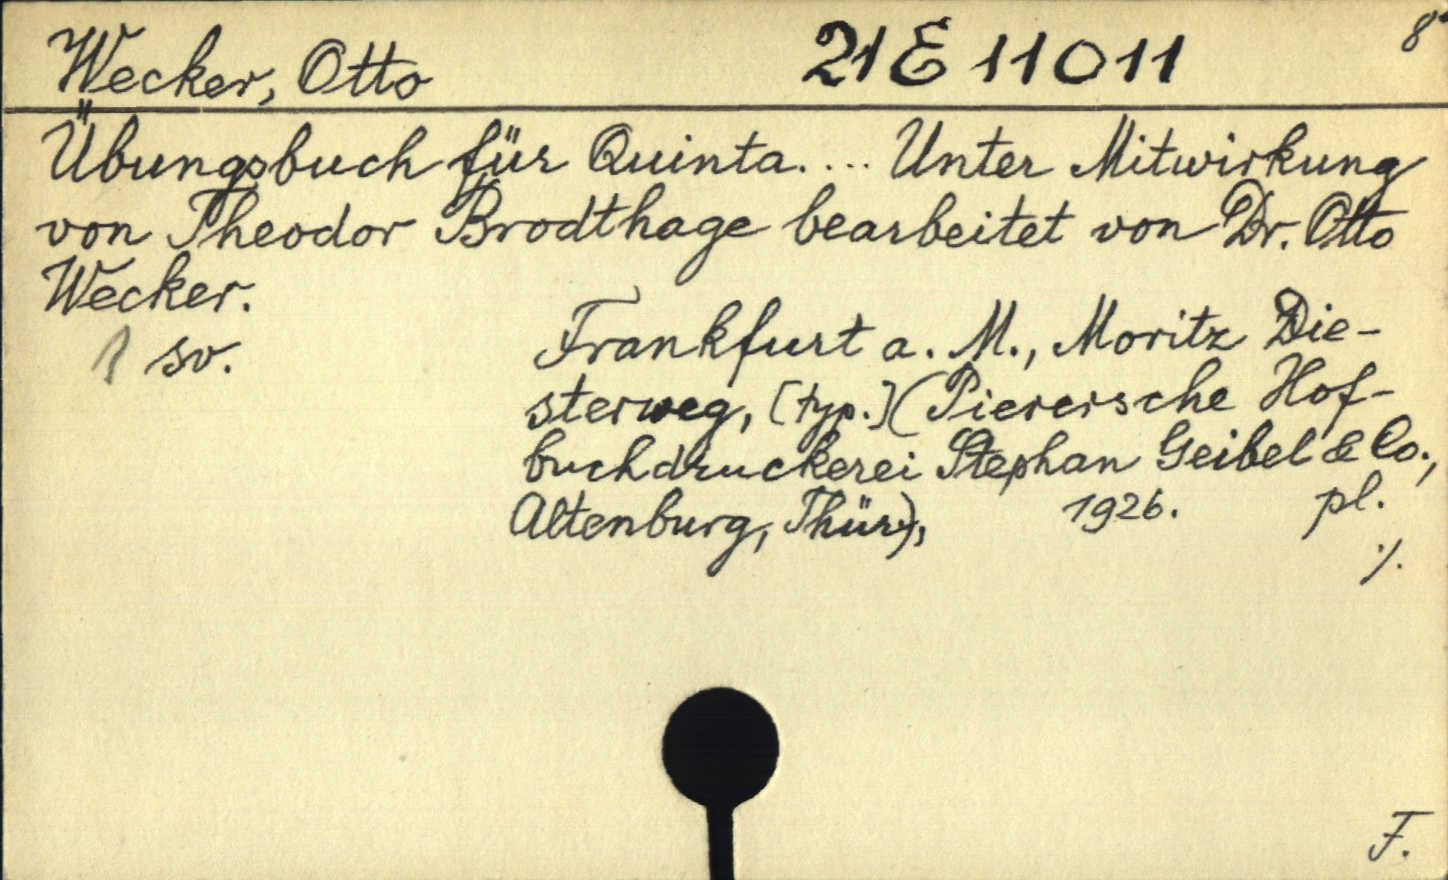 Wecker, Otto 21 E 11011 8°
Übungsbuch für Quinta.... Unter Mitwirkung
von Theodor Brodthage bearbeitet von Dr. Otto
Wecker.
1 sv. Frankfurt a. M., Moritz Die-
sterweg, [typ.] (Pierersche Hof-
buchdruckerei Stephan Geibel & Co.,
Altenburg, Thür.), 1926. pl.
./.
F.